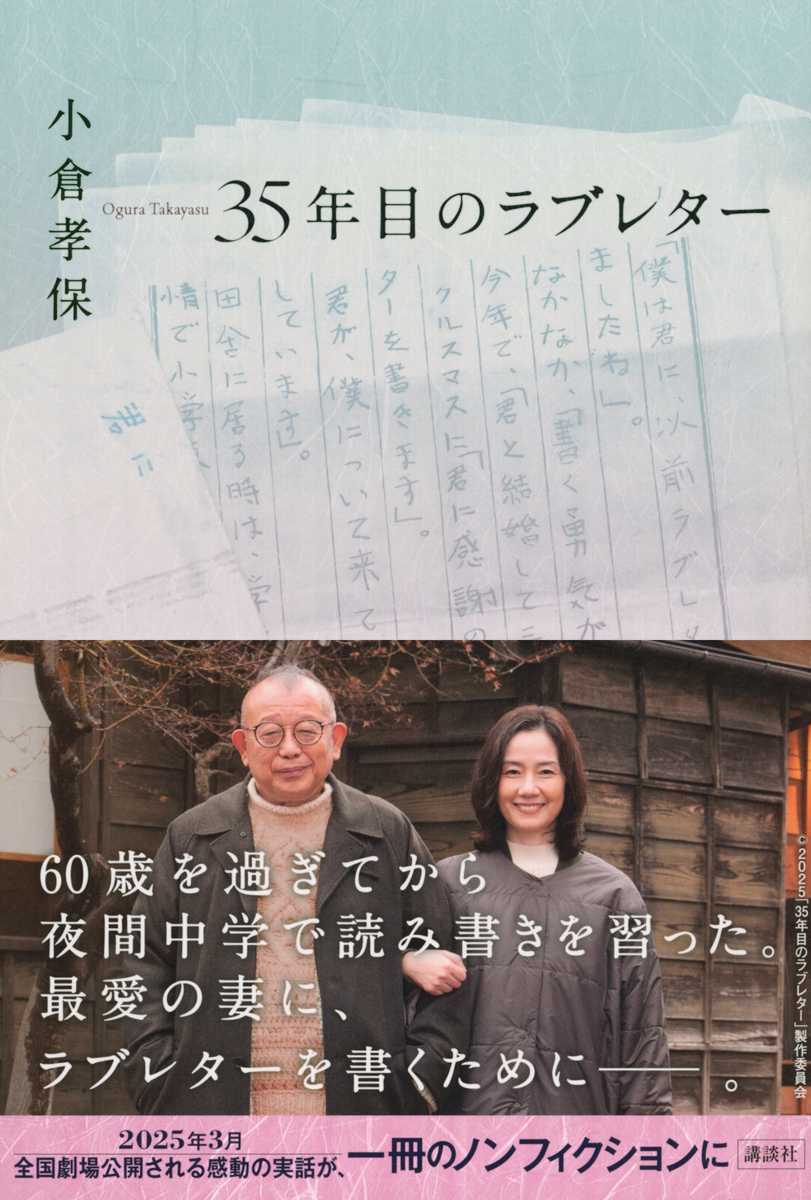 小倉孝保
Ogura Takayasu
35年目のラブレター
「僕は君に、以前ラブレタ
ましたね」。
なかなか、「書く勇気が
今年で、「君と結婚して三
クルスマスに「君に感謝の
ターを書きます」。
君が、僕について来て
しています」。
田舎に居る時は、学
情で小学
君に
60歳を過ぎてから
夜間中学で読み書きを習った。
最愛の妻に、
ラブレターを書くために──。
©2025「35年目のラブレター」製作委員会
2025年3月
全国劇場公開される感動の実話が、
一冊のノンフィクションに
講談社